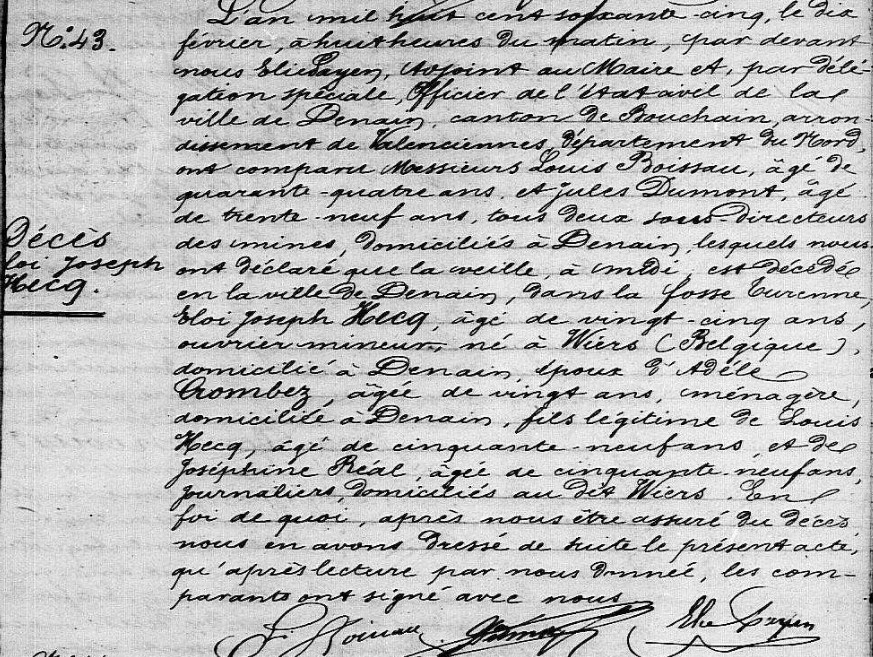 L'an mil huit cent soixante-cinq, le dix
N.° 43.
février, à huit heures du matin, par devant
nous Elie Cayen, Adjoint au Maire et, par délé-
gation spéciale, Officier de l'état civil de la
ville de Denain, canton de Bouchain, arron-
dissement de Valenciennes, département du Nord,
ont comparu Messieurs Louis Boissau, âgé de
quarante-quatre ans, et Jules Dumont, âgé
de trente-neuf ans, tous deux sous directeurs
Décès
des mines, domiciliés à Denain, lesquels nous
loi Joseph
ont déclaré que la veille, à midi, est décédé
Hecq.
en la ville de Denain, dans la fosse Turenne,
Eloi Joseph Hecq, âgé de vingt-cinq ans,
ouvrier mineur, né à Wiers (Belgique),
domicilié à Denain, époux d'Adèle
Crombez, âgée de vingt ans, ménagère,
domiciliée à Denain, fils légitime de Louis
Hecq, âgé de cinquante-neuf ans, et de
Joséphine Réal, âgée de cinquante-neuf ans,
journaliers, domiciliés au dit Wiers. En
foi de quoi, après nous être assuré du décès,
nous en avons dressé de suite le présent acte,
qu'après lecture par nous donnée, les com-
parants ont signé avec nous
L. Boissau Dumont Elie Cayen